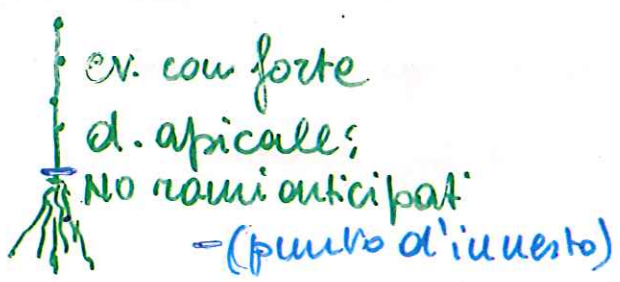 cv. con forte
d. apicale;
No rami anticipati
-(punto d'innesto)